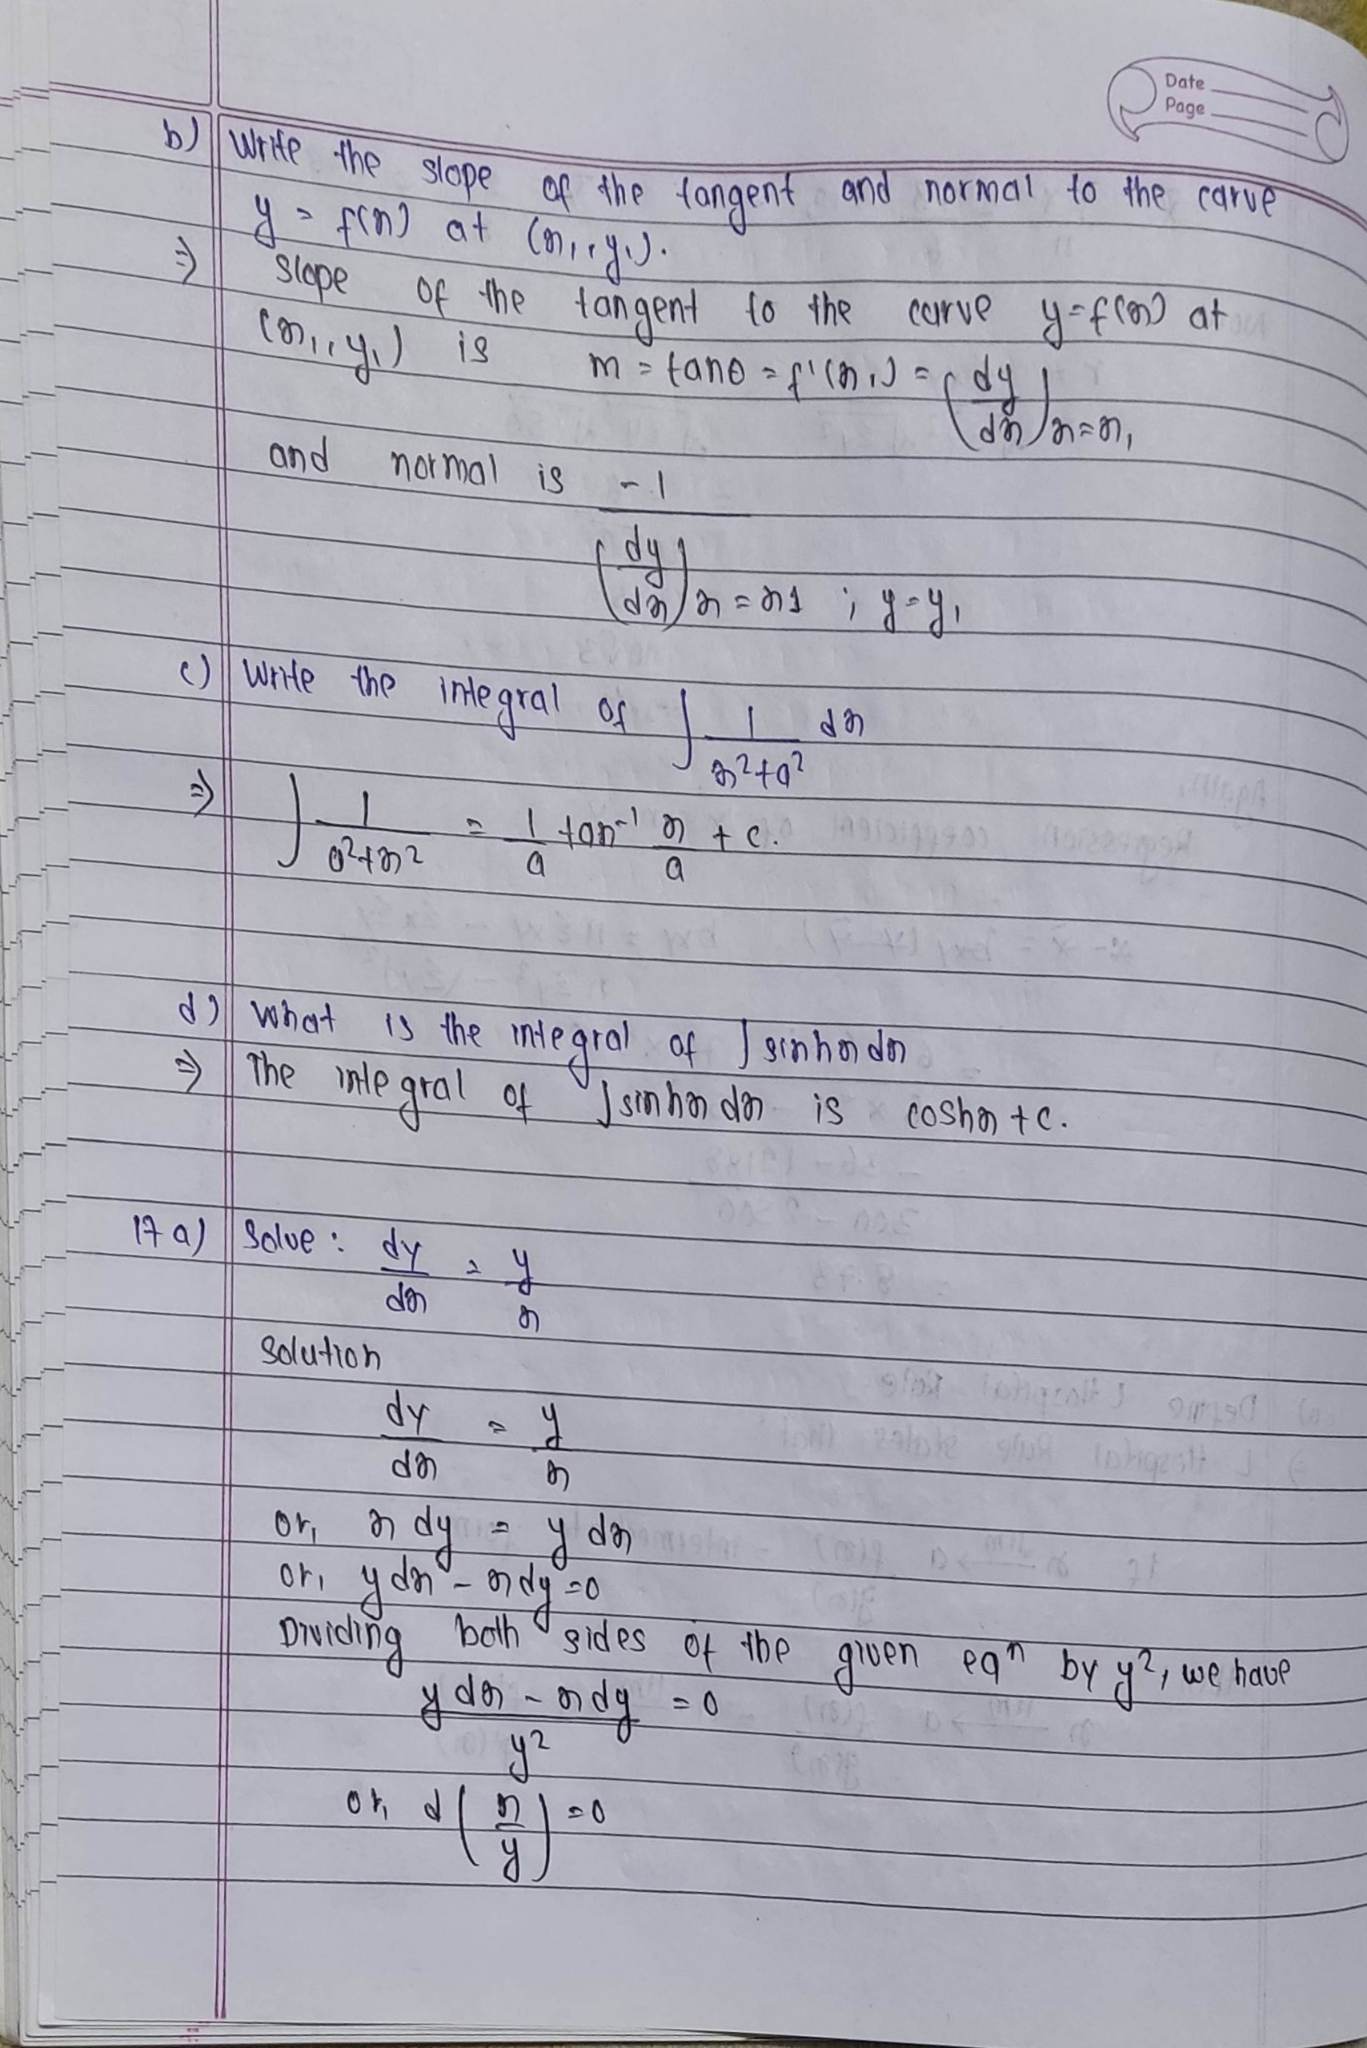 Date
Page
b) Write the slope of the tangent and normal to the carve
y = f(x) at (x₁, y₁).
⇒ slope of the tangent to the carve y = f(x) at
(x₁, y₁) is m = tanθ = f'(x₁) = (dy/dx) x=x₁
and normal is -1 / (dy/dx) x = x1 ; y=y₁
c) Write the integral of ∫ 1/(x²+a²) dx
⇒ ∫ 1/(a²+x²) = 1/a tan⁻¹ x/a + c.
d) What is the integral of ∫ sinhx dx
⇒ The integral of ∫ sinhx dx is coshx + c.
17 a) Solve : dy/dx = y/x
Solution
dy/dx = y/x
or, x dy = y dx
or, y dx - x dy = 0
Dividing both sides of the given eqⁿ by y², we have
(y dx - x dy)/y² = 0
or, d (x/y) = 0